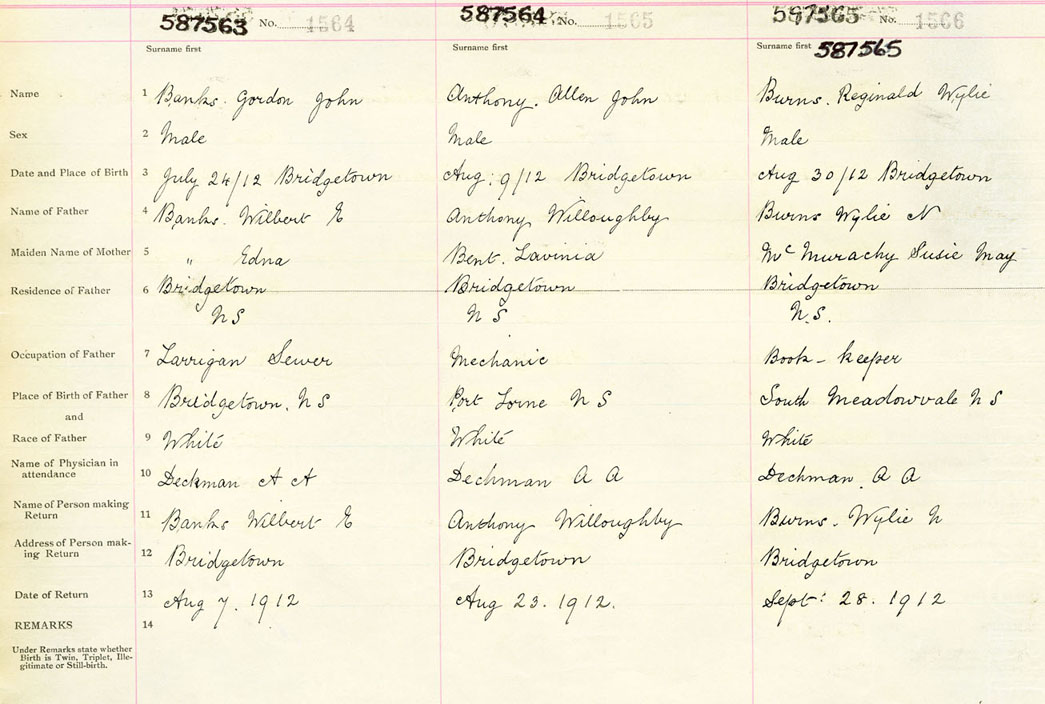 587563 No. 1564 587564 No. 1565 587565 No. 1566
Surname first Surname first Surname first 587565
Name 1 Banks. Gordon John Anthony. Allen John Burns. Reginald Wylie
Sex 2 Male Male Male
Date and Place of Birth 3 July 24/12 Bridgetown Aug: 9/12 Bridgetown Aug 30/12 Bridgetown
Name of Father 4 Banks. Wilbert E Anthony Willoughby Burns Wylie N
Maiden Name of Mother 5 " Edna Bent. Lavinia Mc Murachy Susie May
Residence of Father 6 Bridgetown Bridgetown Bridgetown
N S N S N.S.
Occupation of Father 7 Larrigan Sewer Mechanic Book-keeper
Place of Birth of Father 8 Bridgetown. N S Port Lorne N S South Meadowvale N S
and
Race of Father 9 White White White
Name of Physician in
attendance 10 Deckman A A Dechman A A Dechman. A A
Name of Person making
Return 11 Banks Wilbert E Anthony Willoughby Burns. Wylie N
Address of Person mak-
ing Return 12 Bridgetown Bridgetown Bridgetown
Date of Return 13 Aug 7. 1912 Aug 23. 1912. Sept: 28. 1912
REMARKS 14
Under Remarks state whether
Birth is Twin, Triplet, Ille-
gitimate or Still-birth.